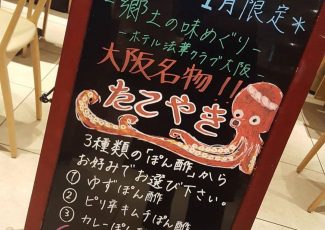 1月限定*
-郷土の味めぐり-
-ホテル法華クラブ大阪-
大阪名物!!
たこやき
3種類の「ぽん酢」から
お好みでお選び下さい。
① ゆずぽん酢
② ピリ辛キムチぽん酢
③ カレーぽん